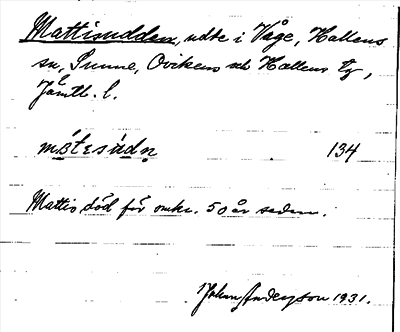 Mattisudden, udde i Våge, Hallens
sn, Sunne, Ovikens och Hallens tg,
Jämtl. l.
mátesùdn̥ 134
Mattis död för omkr. 50 år sedan.
John Anderson 1931.